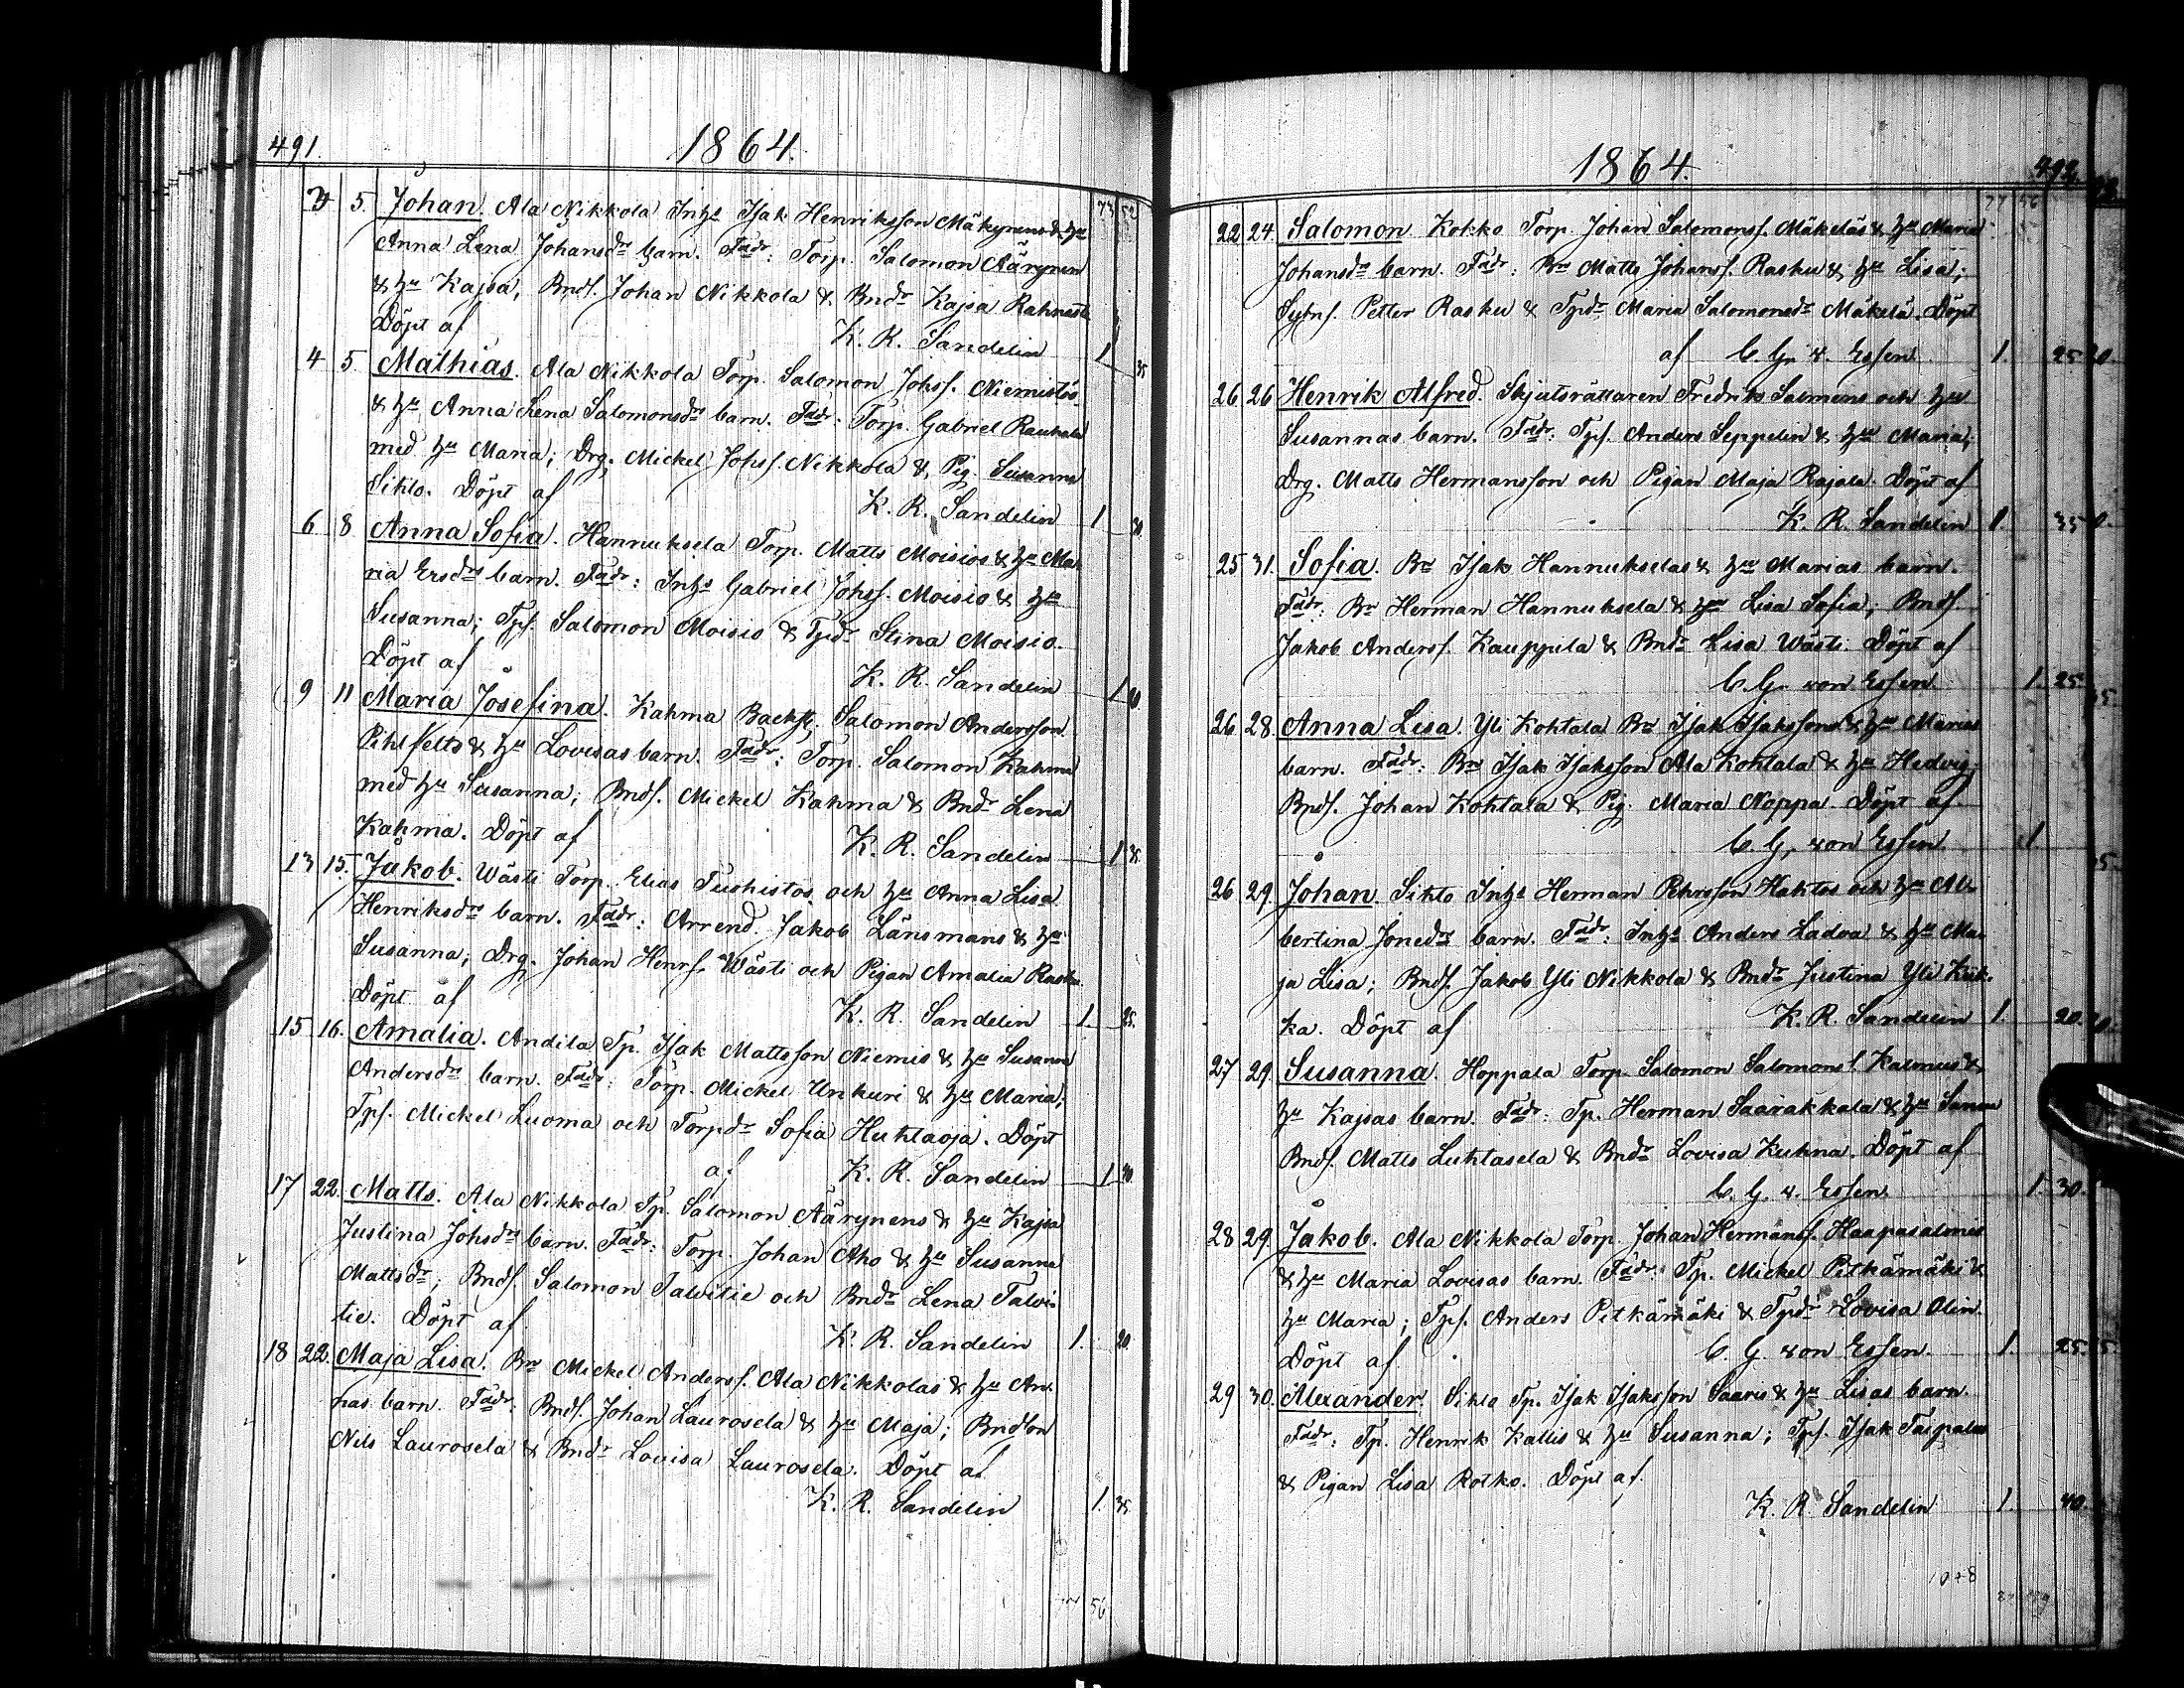 491. 1864.
5. Johan. Ala Nikkola Inhs Isak Henriksson Mäkynens & hu 73 52
Anna Lena Johansdrs barn. Fadr: Torp. Salomon Äärynen
& hu Kajsa; Bnds. Johan Nikkola & Bndr Kajsa
Döpt af K. R. Sandelin 1
4 5. Mathias. Ala Nikkola Torp. Salomon Johss. Niemistös
& hu Anna Lena Salomonsdrs barn. Fadr: Torp. Gabriel Rauhala
med hu Maria; Drg. Mickel Johss. Nikkola & Pig. Susanna
Sihto. Döpt af K. R. Sandelin 1
6 8 Anna Sofia. Hannuksela Torp. Matts Moisios & hu Ma-
ria Ersdrs barn. Fadr: Inhs Gabriel Johss. Moisio & hu
Susanna; Tps. Salomon Moisio & Tpdr Stina Moisio.
Döpt af K. R. Sandelin 1
9 11 Maria Josefina. Kahma Backst. Salomon Andersson
Pihlfelts & hu Lovisas barn. Fadr: Torp. Salomon Kahma
med hu Susanna; Bnds. Mickel Kahma & Bndr Lena
Kahma. Döpt af K. R. Sandelin 1
13 15. Jakob. Wästi Torp. Elias Tuohistos och hu Anna Lisa
Henriksdrs barn. Fadr: Arrend. Jakob Länsmans & hu
Susanna; Drg. Johan Henrs. Wästi och Pigan Amalia Rasku.
Döpt af K. R. Sandelin 1. 25.
15 16. Amalia. Andila Tp. Isak Mattsson Niemis & hu Susanna
Andersdrs barn. Fadr: Torp. Mickel Unkuri & hu Maria;
Tps. Mickel Luoma och Torpdr Sofia Huhtaoja. Döpt
af K. R. Sandelin 1
17 22. Matts. Ala Nikkola Tp. Salomon Äärynens & hu Kajsa
Justina Johsdrs barn. Fadr: Torp. Johan Aho & hu Susanna
Mattsdr; Bnds. Salomon Talvitie och Bndr Lena Talvi-
tie. Döpt af K. R. Sandelin 1. 20.
18 22. Maja Lisa. Bn Mickel Anderss. Ala Nikkolas & hu An-
nas barn. Fadr: Bnds. Johan Laurosela & hu Maja; Bndson
Nils Laurosela & Bndr Lovisa Laurosela. Döpt af
K. R. Sandelin 1. 35.
56
1864. 492
77 56
22 24. Salomon. Kokko Torp. Johan Salomonss. Mäkeläs & hu Maria
Johansdrs barn. Fadr: Bn Matts Johanss. Rasku & hu Lisa;
Sytns. Petter Rasku & Tpdr Maria Salomonsdr Mäkelä. Döpt
af C. G. v. Essen 1. 25
26 26 Henrik Alfred. Skjutsrättaren Fredrik Salmens och hu
Susannas barn. Fadr: Tps. Anders Seppelin & hu Maria;
Drg. Matts Hermansson och Pigan Maja Rajala. Döpt af
K. R. Sandelin 1. 35
25 31. Sofia. Bn Isak Hannukselas & hu Marias barn.
Fadr: Bn Herman Hannuksela & hu Lisa Sofia; Bnds
Jakob Anderss. Kauppila & Bndr Lisa Wästi. Döpt af
C. G. von Essen. 1. 25.
26 28. Anna Lisa. Yli Kohtala Bn Isak Isakssons & hu Marias
barn. Fadr: Bn Isak Isaksson Ala Kohtala & hu Hedvig;
Bnds. Johan Kohtala & Pig. Maria Noppa. Döpt af
C. G. von Essen 1
26 29. Johan. Sihto Inhs Herman Pehrsson Hahtos och hu Al-
bertina Jonedrs barn. Fadr: Inhs Anders Ladva & hu Ma-
ja Lisa; Bnds. Jakob Yli Nikkola & Bndr Justina Yli Kuk-
ka. Döpt af K. R. Sandelin 1. 20.
27 29. Susanna. Hoppala Torp. Salomon Salomonss. Kalmus &
hu Kajsas barn. Fadr: Tp. Herman Saarakkala & hu Sanna
Bnds. Matts Luhtasela & Bndr Lovisa Kuhna. Döpt af
C. G. v. Essen. 1. 30.
28 29. Jakob. Ala Nikkola Torp. Johan Hermanss. Haapasalmis
& hu Maria Lovisas barn. Fadr: Tp. Mickel Pitkämäki &
hu Maria; Tps. Anders Pitkämäki & Tpdr Lovisa Olin.
Döpt af C. G. von Essen. 1. 25.
29 30. Alexander. Sihto Tp. Isak Isaksson Saaris & hu Lisas barn.
Fadr: Tp. Henrik Kallis & hu Susanna; Tps. Isak Taipalus
& Pigan Lisa Rotko. Döpt af.
K. R. Sandelin 1. 40.
10+8